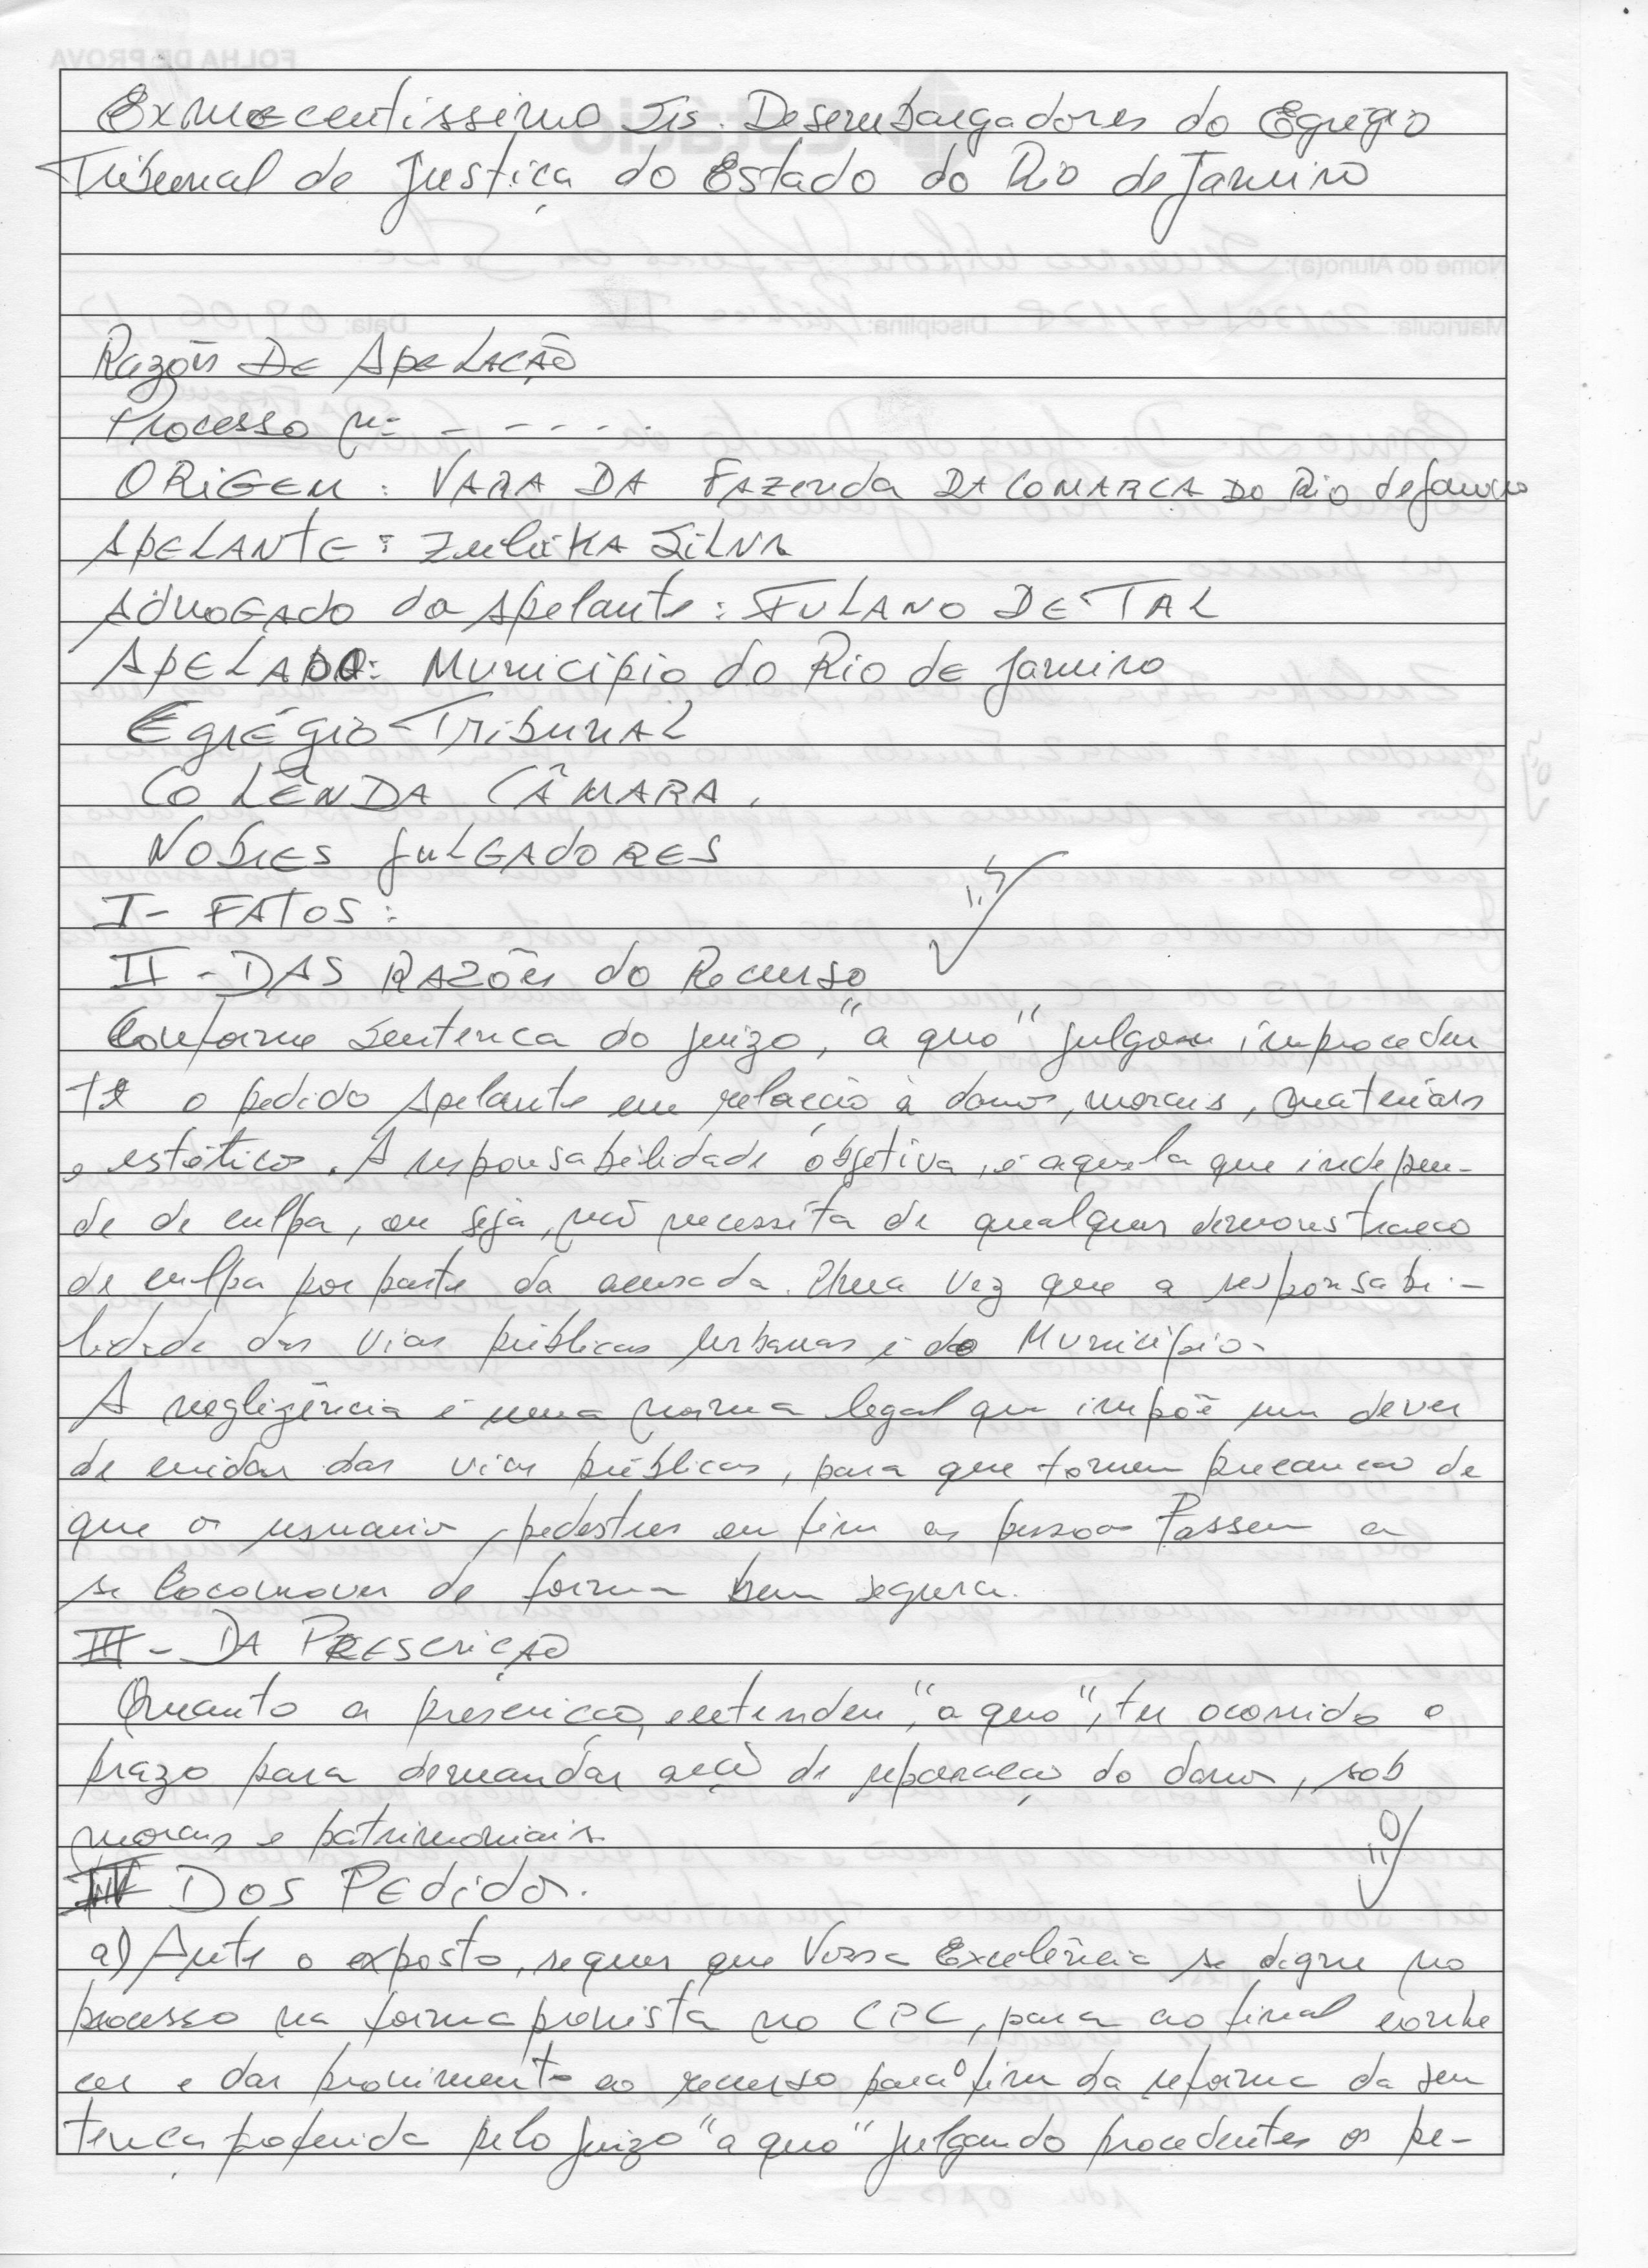 Exmecentissimo Srs. Desembargadores do Egrégio
Tribunal de Justiça do Estado do Rio de Janeiro
Razões DE APELAÇÃO
Processo nº - - - - -
ORIGEM: VARA DA FAZENDA DA COMARCA DO Rio de Janeiro
APELANTE: Zuleika SILVA
ADVOGADO da Apelante: FULANO DE TAL
APELADO: Município do Rio de Janeiro
EgrÉgio Tribunal
COLÊNDA CÂMARA,
NOBRES JULGADORES
I- FATOS:
1,5
II - DAS RAZões do Recurso
Conforme Sentença do juizo, "a quo" julgou improceden
te o pedido Apelante em relação à danos, morais, materiais
e estético. A responsabilidade objetiva, é aquela que indepen-
de de culpa, ou seja, não necessita de qualquer demonstraço
de culpa por parte da acusada. Uma vez que a responsabi-
lidade das vias públicas urbanas é do Município.
A negligência é uma norma legal que impõe um dever
de cuidar das vias públicas, para que tomem precaução de
que o usuario, pedestres em fim as pessoas Possem a
se locomover de forma bem segura.
III - DA PRESCRIÇÃO
Quanto a prescriçço, entendeu, "a quo", ter ocorrido o
prazo para demandar ação de reparação do danos, sob
morais e patrimoniais.
1,0
IV DOS PEdidos.
a) Ante o exposto, requer que Vossa Excelência se digne no
processo na forma prevista no CPC, para ao final conhe
cer e dar provimento ao recurso para o fim da reforma da sen
tença proferida pelo juizo "a quo" julgando procedentes os pe-